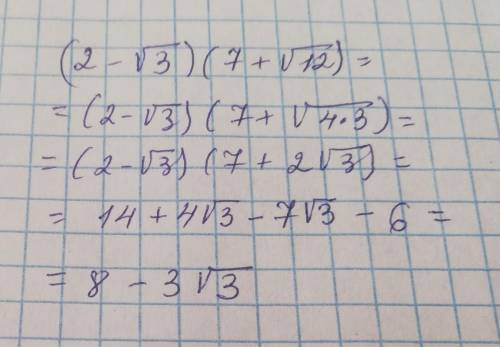 (2 - √3)(7 + √12) =
= (2 - √3)(7 + √4·3) =
= (2 - √3)(7 + 2√3) =
= 14 + 4√3 - 7√3 - 6 =
= 8 - 3√3